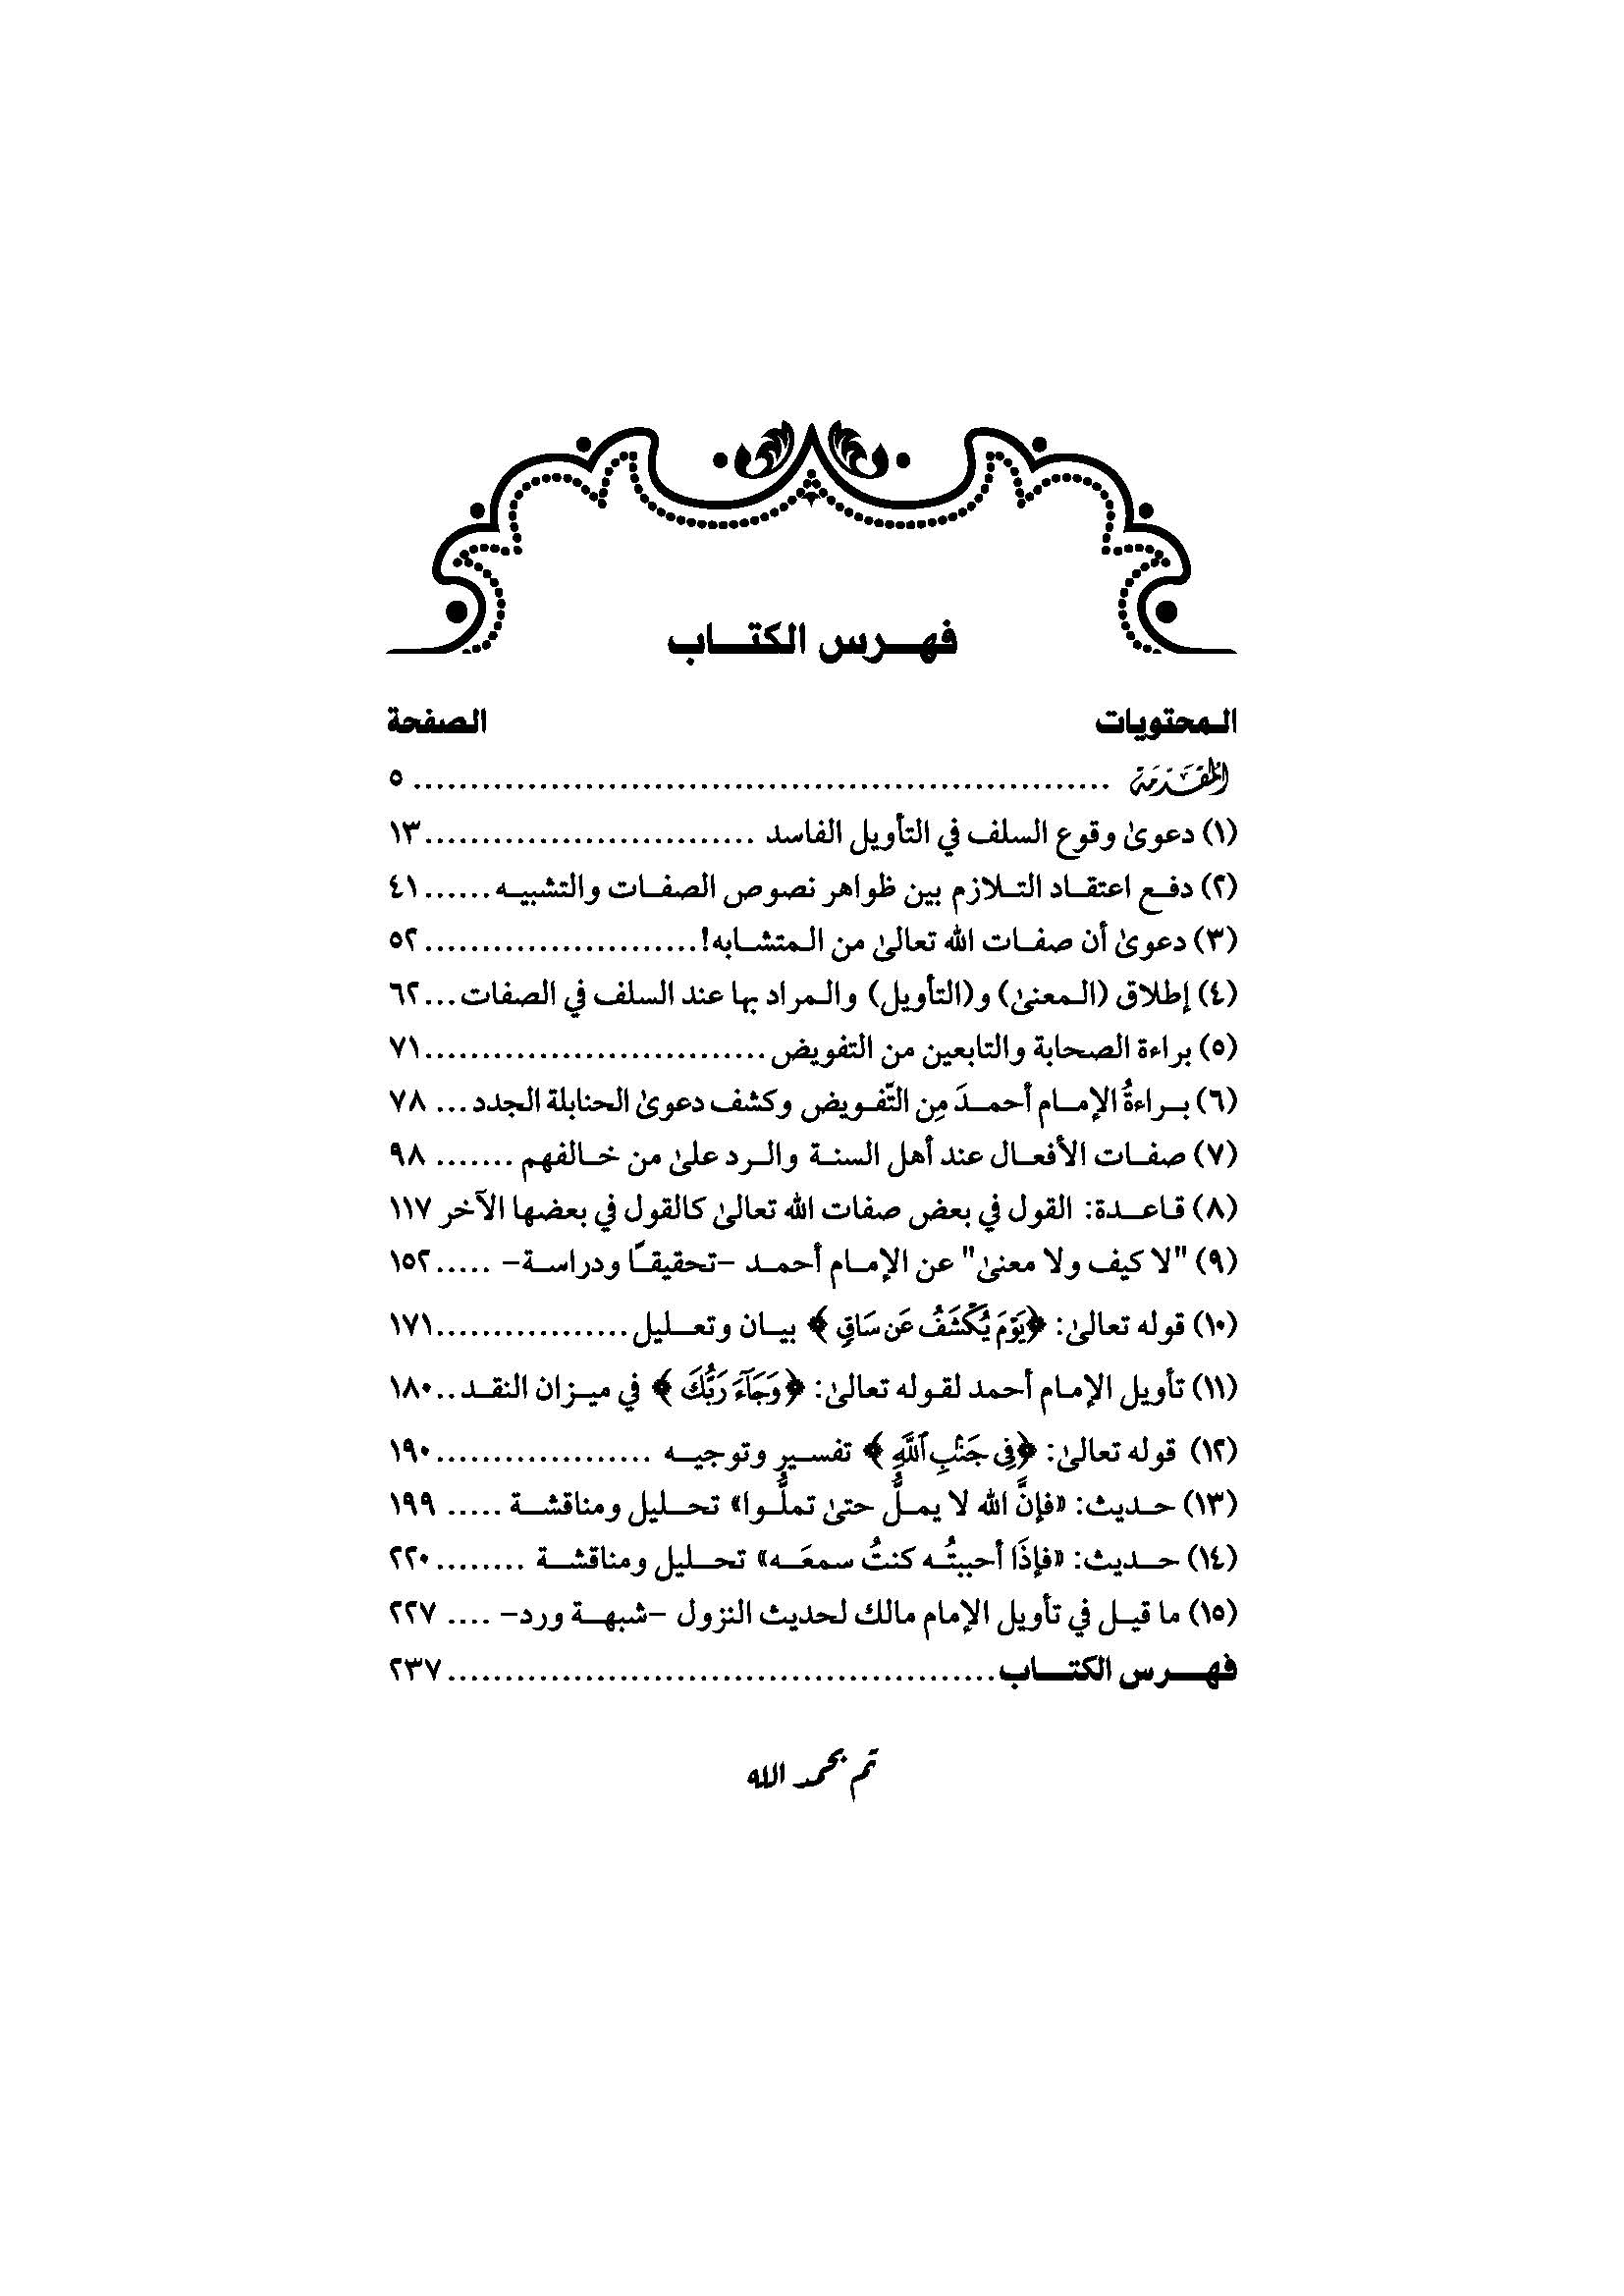 فهرس الكتاب
المحتويات الصفحة
المقدمة ............................................................ ٥
(١) دعوىٰ وقوع السلف في التأويل الفاسد .............................١٣
(٢) دفع اعتقاد التلازم بين ظواهر نصوص الصفات والتشبيه......٤١
(٣) دعوىٰ أن صفات الله تعالىٰ من المتشابه!........................٥٢
(٤) إطلاق (المعنىٰ) و(التأويل) والمراد بها عند السلف في الصفات...٦٢
(٥) براءة الصحابة والتابعين من التفويض..............................٧١
(٦) براءةُ الإمام أحمدَ مِن التّفويض وكشف دعوىٰ الحنابلة الجدد... ٧٨
(٧) صفات الأفعال عند أهل السنة والرد علىٰ من خالفهم ....... ٩٨
(٨) قاعدة: القول في بعض صفات الله تعالىٰ كالقول في بعضها الآخر ١١٧
(٩) "لا كيف ولا معنىٰ" عن الإمام أحمد -تحقيقًا ودراسة- .....١٥٢
(١٠) قوله تعالىٰ: ﴿يَوْمَ يُكْشَفُ عَن سَاقٍ﴾ بيان وتعليل.................١٧١
(١١) تأويل الإمام أحمد لقوله تعالىٰ: ﴿وَجَآءَ رَبُّكَ﴾ في ميزان النقد..١٨٠
(١٢) قوله تعالىٰ: ﴿فِى جَنۢبِ ٱللَّهِ﴾ تفسير وتوجيه ...................١٩٠
(١٣) حديث: «فإنَّ الله لا يملُّ حتىٰ تملُّوا» تحليل ومناقشة ..... ١٩٩
(١٤) حديث: «فإذَا أحببتُه كنتُ سمعَه» تحليل ومناقشة ........٢٢٠
(١٥) ما قيل في تأويل الإمام مالك لحديث النزول -شبهة ورد- .... ٢٢٧
فهرس الكتاب................................................٢٣٧
تم بحمد الله